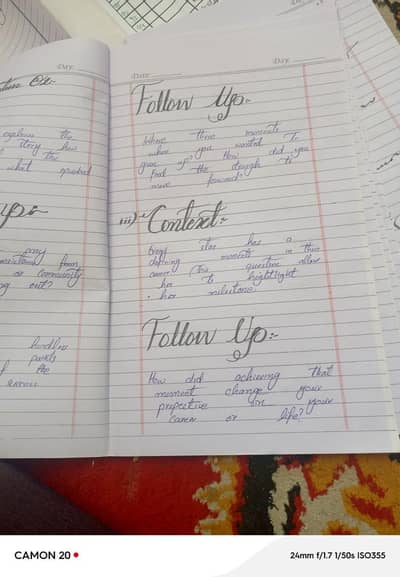 Day:
Date:
Day:
explain the
story how
the
what sparked
any
from
or community
out?
hurdles
Follow Up:-
Where there moments
when you wanted to
give up? How did you
find the strength to
move forward?
iii) Context:-
Every star has a
defining moments in their
career. This question allow
her to hightlight
her milestone.
Follow Up:-
How did achieving that
moment change your
prepective on your
career or life?
CAMON 20
24mm f/1.7 1/50s ISO355